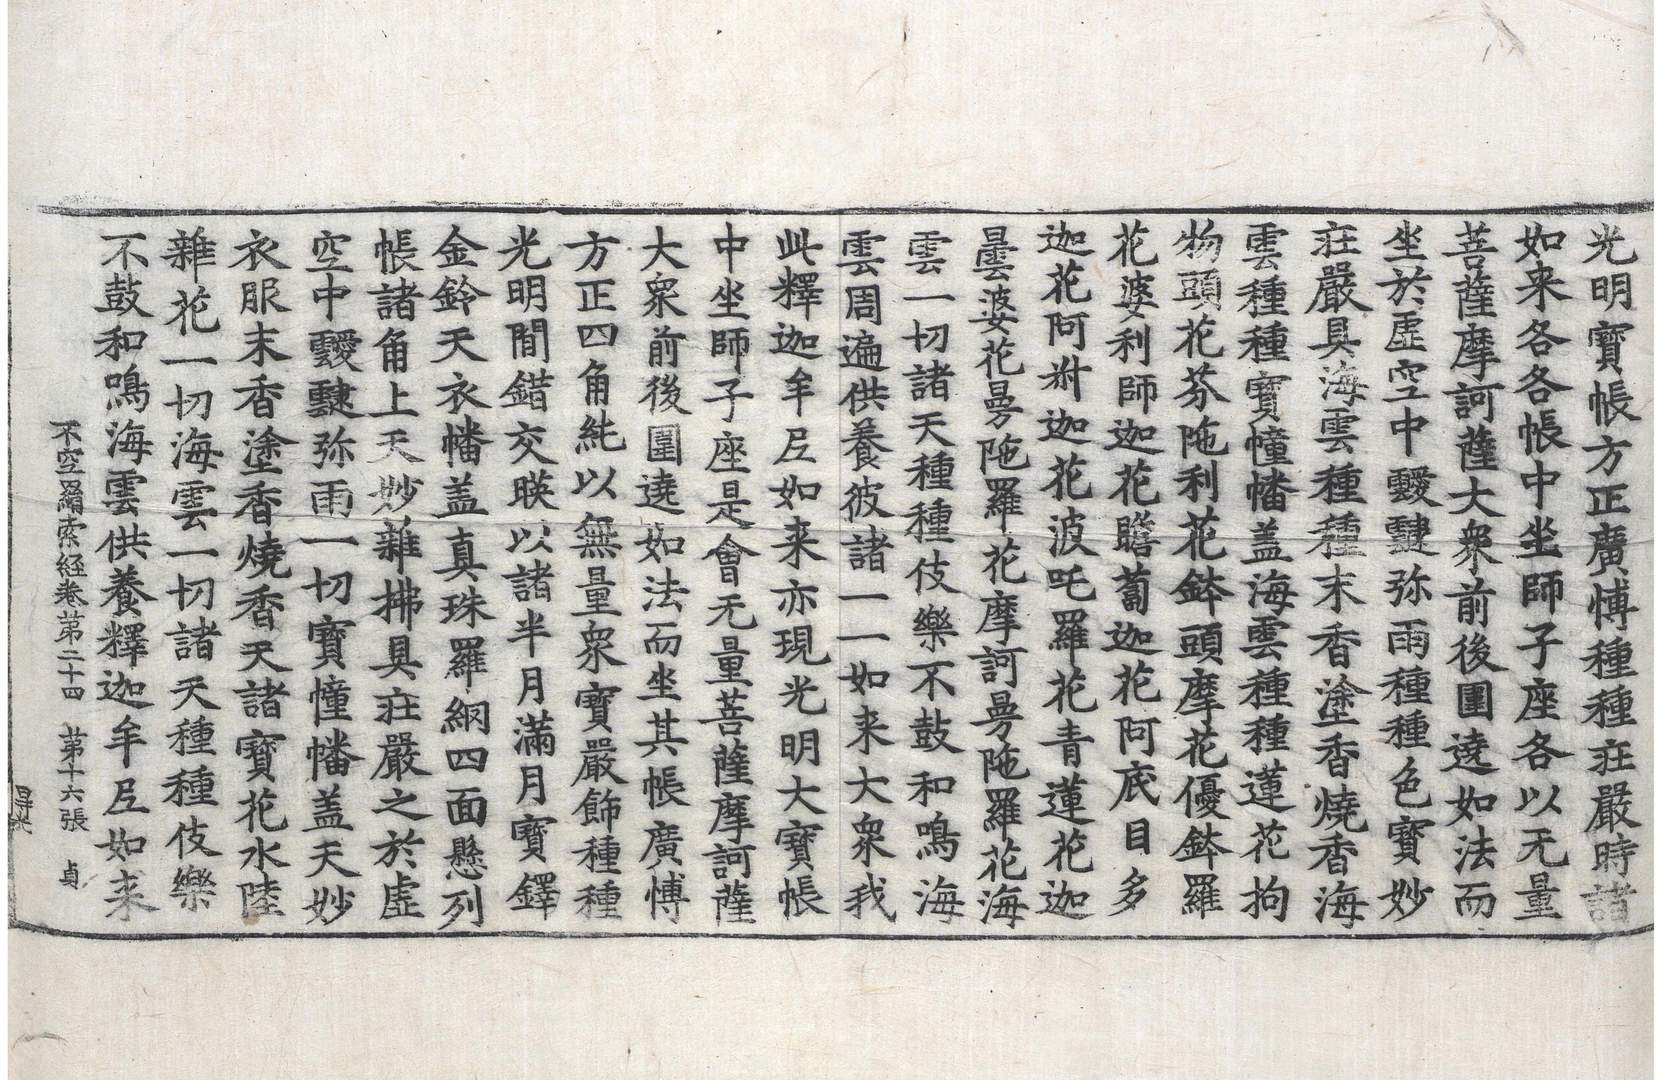 光明寶帳方正廣愽種種莊嚴時諸
如来各各帳中坐師子座各以无量
菩薩摩訶薩大衆前後圍遶如法而
坐於虛空中靉靆弥雨種種色寶妙
莊嚴具海雲種種末香塗香燒香海
雲種種寶幢幡盖海雲種種蓮花拘
物頭花芬陁利花鉢頭摩花優鉢羅
花婆利師迦花瞻蔔迦花阿底目多
迦花阿尌迦花波吒羅花青蓮花迦
曇婆花曼陁羅花摩訶曼陁羅花海
雲一切諸天種種伎樂不鼓和鳴海
雲周遍供養彼諸一一如来大衆我
此釋迦牟尼如来亦現光明大寶帳
中坐師子座是會无量菩薩摩訶薩
大衆前後圍遶如法而坐其帳廣愽
方正四角純以無量衆寶嚴飾種種
光明間錯交暎以諸半月滿月寶鐸
金鈴天衣幡盖真珠羅網四面懸列
帳諸角上天妙雜拂具莊嚴之於虛
空中靉靆弥雨一切寶幢幡盖天妙
衣服末香塗香燒香天諸寶花水陸
雜花一切海雲一切諸天種種伎樂
不鼓和鳴海雲供養釋迦牟尼如来
不空羂索経卷第二十四　第十六張　貞